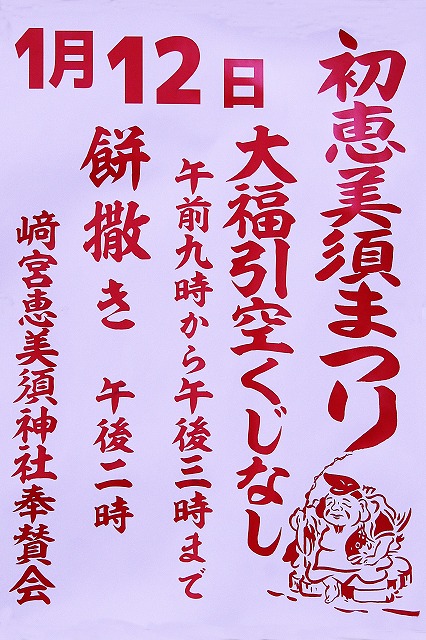 初恵美須まつり
1月12日
大福引空くじなし
午前九時から午後三時まで
餅撒き 午後二時
﨑宮恵美須神社奉賛会